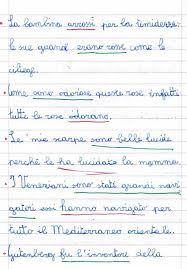 La bambina arrossì per la timidezza
le sue guance erano rose come le
ciliege.
Come sono odorose queste rose infatti
tutte le rose odorano.
Le mie scarpe sono belle lucide
perché le ha lucidate la mamma.
I Veneziani sono stati grandi navi
gatori essi hanno navigato per
tutto il Mediterraneo orientale.
Gutenberg fu l'inventore della